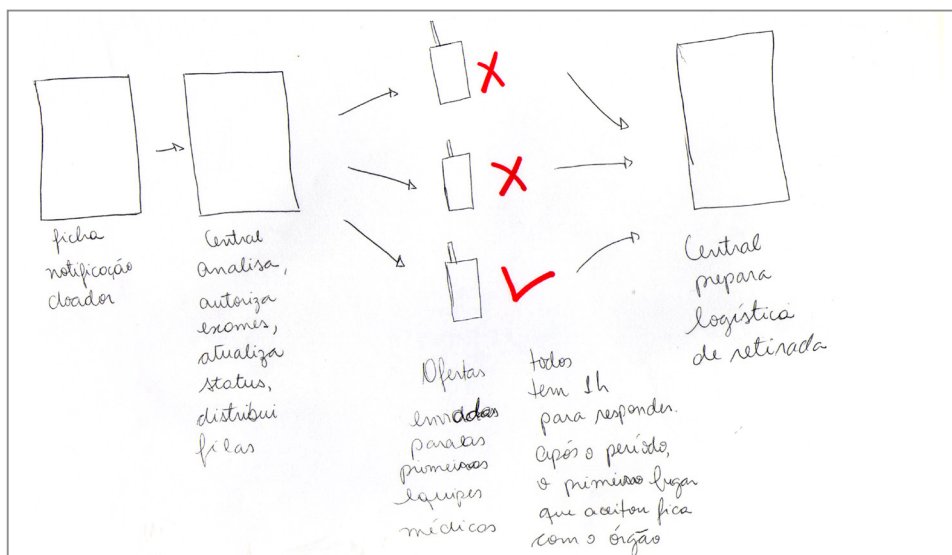 ficha
notificação
doador
Central
analisa,
autoriza
exames,
atualiza
status,
distribui
filas
Ofertas
enviadas
paralas
primeiras
equipes
médicas
todos
tem 1h
para responder.
após o período,
o primeiro lugar
que aceitou fica
com o órgão
Central
prepara
logística
de retirada